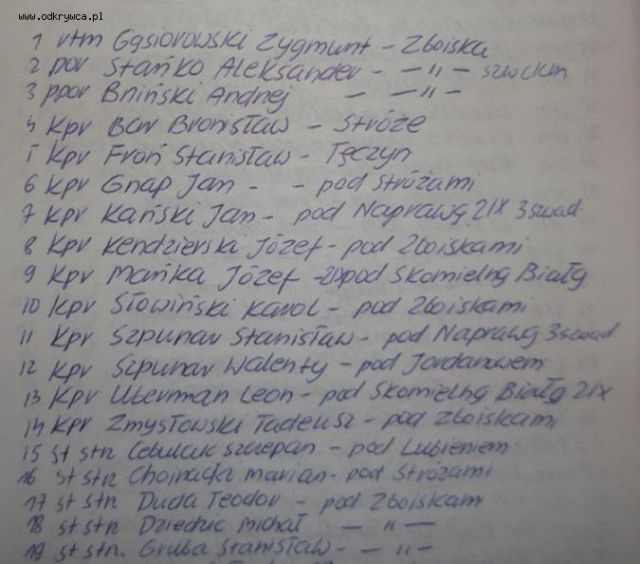 www.odkrywca.pl
1 rtm Gąsiorowski Zygmunt - Zboiska
2 por Stańko Aleksander - — " — szwckm
3 ppor Bniński Andrej — — " —
4 Kpr Bar Bronisław - Stróże
5 Kpr Froń Stanisław - Tęczyn
6 Kpr Gnap Jan - - pod Stróżami
7 Kpr Kański Jan - pod Naprawą 2IX 3szwad.
8 Kpr Kendzierski Józef - pod Zboiskami
9 Kpr Mańka Józef - 2IX pod Skomielną Białą
10 Kpr Słowiński Karol - pod Zboiskami
11 Kpr Szpunar Stanisław - pod Naprawą 3szwad
12 Kpr Szpunar Walenty - pod Jordanowem
13 Kpr Uberman Leon - pod Skomielną Białą 2IX
14 Kpr Zmysłowski Tadeusz - pod Zboiskami
15 st str Cebulak Szczepan - pod Lubieniem
16 st str Chojnacki Marian - pod Stróżami
17 st str Duda Teodor - pod Zboiskam
18 st str Dziedzic Michał — " —
19 st str. Gruba Stanisław - — " —